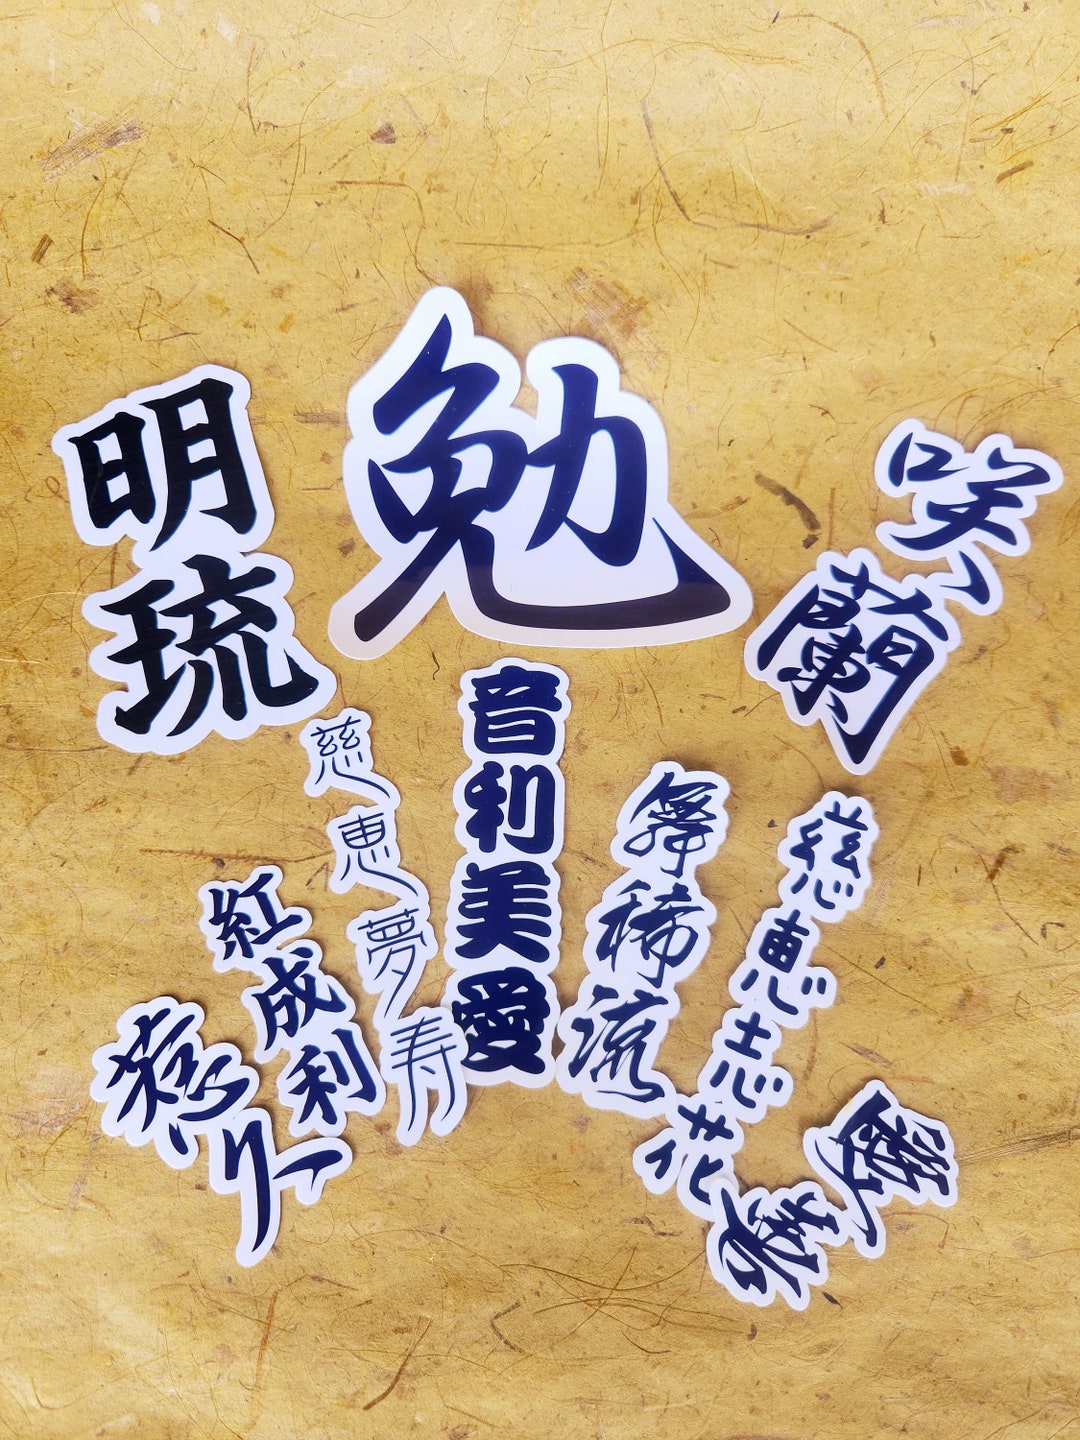 明琉
勉
咲蘭
慈恵夢寿
音利美愛
舞稀流
慈恵志花
紅成利
久